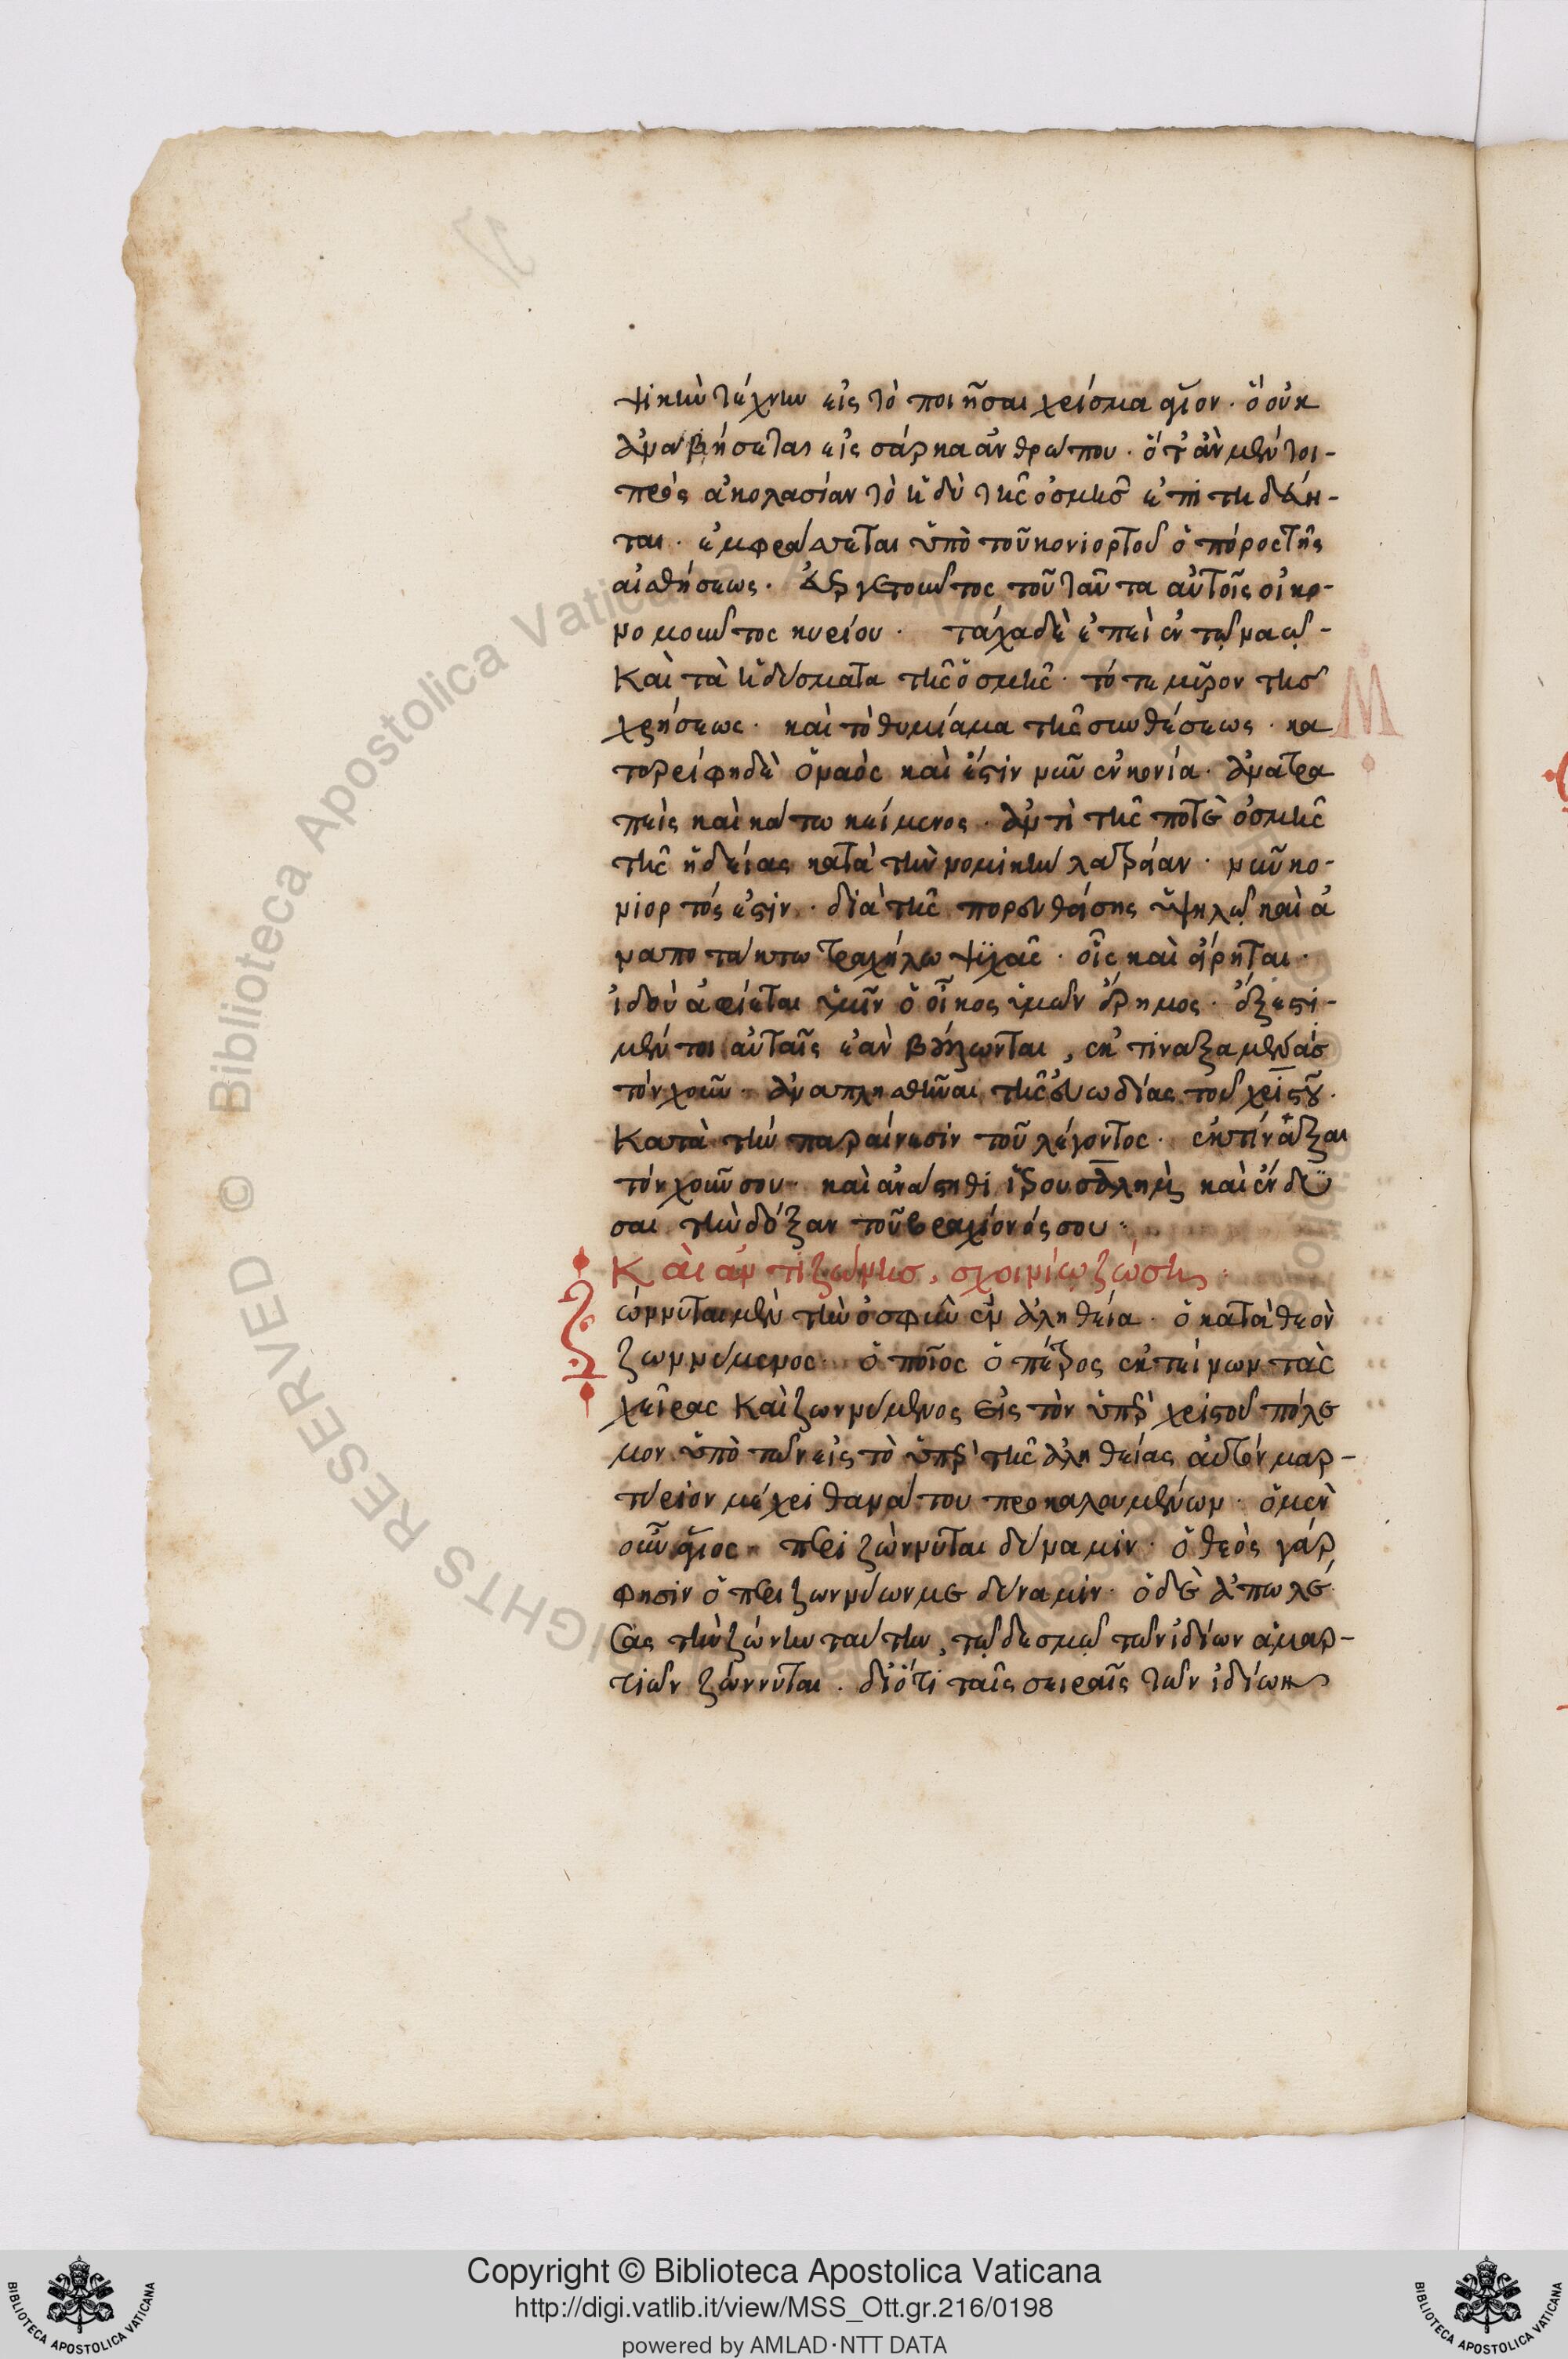 ψικὴν τέχνην εἰς τὸ ποιῆσαι χρίσμα ἅγιον. ὃ οὐκ
ἀναβήσεται εἰς σάρκα ἀνθρώπου. ὅτ᾽ ἂν μέντοι-
πρὸς ἀκολασίαν τὸ ἡδὺ τῆς ὀσμῆς ἐπιτηδεύη-
ται. ἐμφράττεται ὑπὸ τοῦ κονιορτοῦ ὁ πόρος τῆς
αἰσθήσεως. τοῦ ταῦτα αὐτοῖς οἰκο-
νομοῦντος κυρίου. τάχα δὲ ἐπεὶ ἐν τῷ ναῷ-
Καὶ τὰ ἡδύσματα τῆς ὀσμῆς. τό τε μῦρον τῆς
χρήσεως. καὶ τὸ θυμίαμα τῆς συνθέσεως. κα
τερείφη δὲ ὁ ναὸς καὶ ἔστιν νῦν ἐν κονία. ἀνατρα
πεὶς καὶ κάτω κείμενος. ἀντὶ τῆς ποτὲ ὀσμῆς
τῆς ἡδείας κατὰ τὴν νομικὴν λατρείαν. νῦν κο-
νιορτός ἐστιν. διὰ τῆς πορευθείσης ὑψηλῶ καὶ ἀ
ναπεπταμένω τραχήλω ψυχῆς. οἷς καὶ εἴρηται.
ἰδοὺ ἀφίεται ὑμῖν ὁ οἶκος ὑμῶν ἔρημος. ἔξεστι-
μέντοι αὐταῖς ἐὰν βούλωνται, ἐκτιναξαμένας
τὸν χοῦν. ἀναπλησθῆναι τῆς εὐωδίας τοῦ χριστοῦ.
Κατὰ τὴν παραίνεσιν τοῦ λέγοντος. ἐκτίναξαι
τὸν χοῦν σου. καὶ ἀνάστηθι ἱερουσαλημ καὶ ἔνδυ
σαι τὴν δόξαν τοῦ βραχίονός σου.
Καὶ ἀντὶ ζώνης, σχοινίῳ ζώσῃ.
ώννυται μὲν τὴν ὀσφῦν ἐν ἀληθεία. ὁ κατὰ θεὸν
ζωννύμενος. ὁποῖος ὁ πέτρος ἐκτείνων τὰς
χεῖρας Καὶ ζωννύμενος εἰς τὸν ὑπὲρ χριστοῦ πόλε
μον ὑπὸ τῶν εἰς τὸ ὑπὲρ τῆς ἀληθείας αὐτὸν μαρ-
τύριον μέχρι θανάτου προκαλουμένων. ὁ μὲν
οὖν ἅγιος περιζώννυται δύναμιν. ὁ θεὸς γάρ
φησιν ὁ περιζωννύων με δύναμιν. ὁ δὲ ἀπωλέ
σας τὴν ζώνην ταύτην, τῷ δεσμῷ τῶν ἰδίων ἁμαρ-
τιῶν ζώννυται. διότι ταῖς σειραῖς τῶν ἰδίων
Copyright © Biblioteca Apostolica Vaticana
http://digi.vatlib.it/view/MSS_Ott.gr.216/0198
powered by AMLAD·NTT DATA